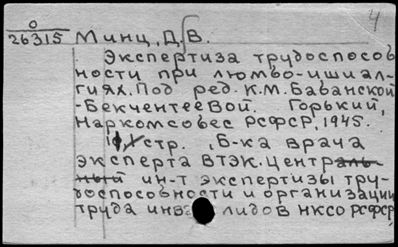 4
0
26315 Минц, Д. В.
Экспертиза трудоспособ
ности при люмбо-ишиал-
гиях. Под ред. К.М. Бабанской
-Бекчентеевой. Горький,
Наркомсобес РСФСР, 1945.
стр. , Б-ка врача
эксперта ВТЭК. Централь-
ный ин-т экспертизы тру-
доспособности и организации
труда инвалидов НКСО РСФСР